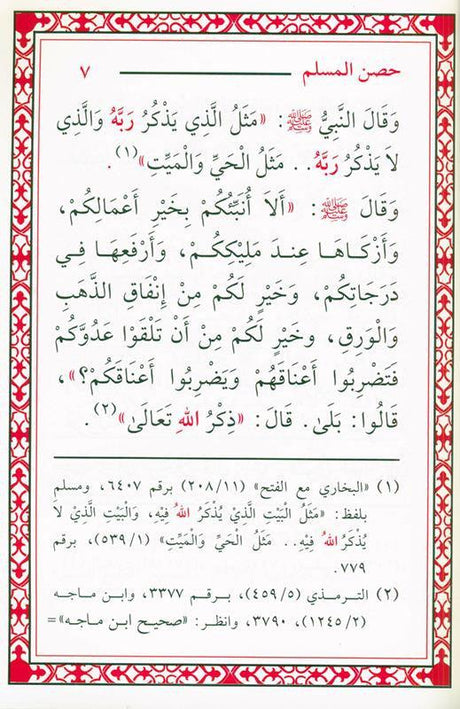 حصن المسلم ٧
وَقَالَ النَّبِيُّ ﷺ: «مَثَلُ الَّذِي يَذْكُرُ رَبَّهُ وَالَّذِي
لاَ يَذْكُرُ رَبَّهُ.. مَثَلُ الْحَيِّ وَالْمَيِّتِ»(١).
وَقَالَ ﷺ: «أَلاَ أُنَبِّئُكُمْ بِخَيْرِ أَعْمَالِكُمْ،
وَأَزْكَاهَا عِندَ مَلِيْكِكُمْ، وَأَرْفَعِهَا فِي
دَرَجَاتِكُمْ، وَخَيْرٍ لَكُمْ مِنْ إِنْفَاقِ الذَّهَبِ
وَالْوَرِقِ، وَخَيْرٍ لَكُمْ مِنْ أَنْ تَلْقَوْا عَدُوَّكُمْ
فَتَضْرِبُوا أَعْنَاقَهُمْ وَيَضْرِبُوا أَعْنَاقَكُمْ؟»،
قَالُوا: بَلَىٰ. قَالَ: «ذِكْرُ اللهِ تَعَالَىٰ»(٢).
(١) «البخاري مع الفتح» (٢٠٨/١١) برقم ٦٤٠٧، ومسلم
بلفظ: «مَثَلُ الْبَيْتِ الَّذِيْ يُذْكَرُ اللهُ فِيْهِ، وَالْبَيْتِ الَّذِيْ لاَ
يُذْكَرُ اللهُ فِيْهِ.. مَثَلُ الْحَيِّ وَالْمَيِّتِ» (٥٣٩/١)، برقم
٧٧٩.
(٢) الترمذي (٤٥٩/٥)، برقم ٣٣٧٧، وابن ماجه
(١٢٤٥/٢)، ٣٧٩٠، وانظر: «صحيح ابن ماجه» =